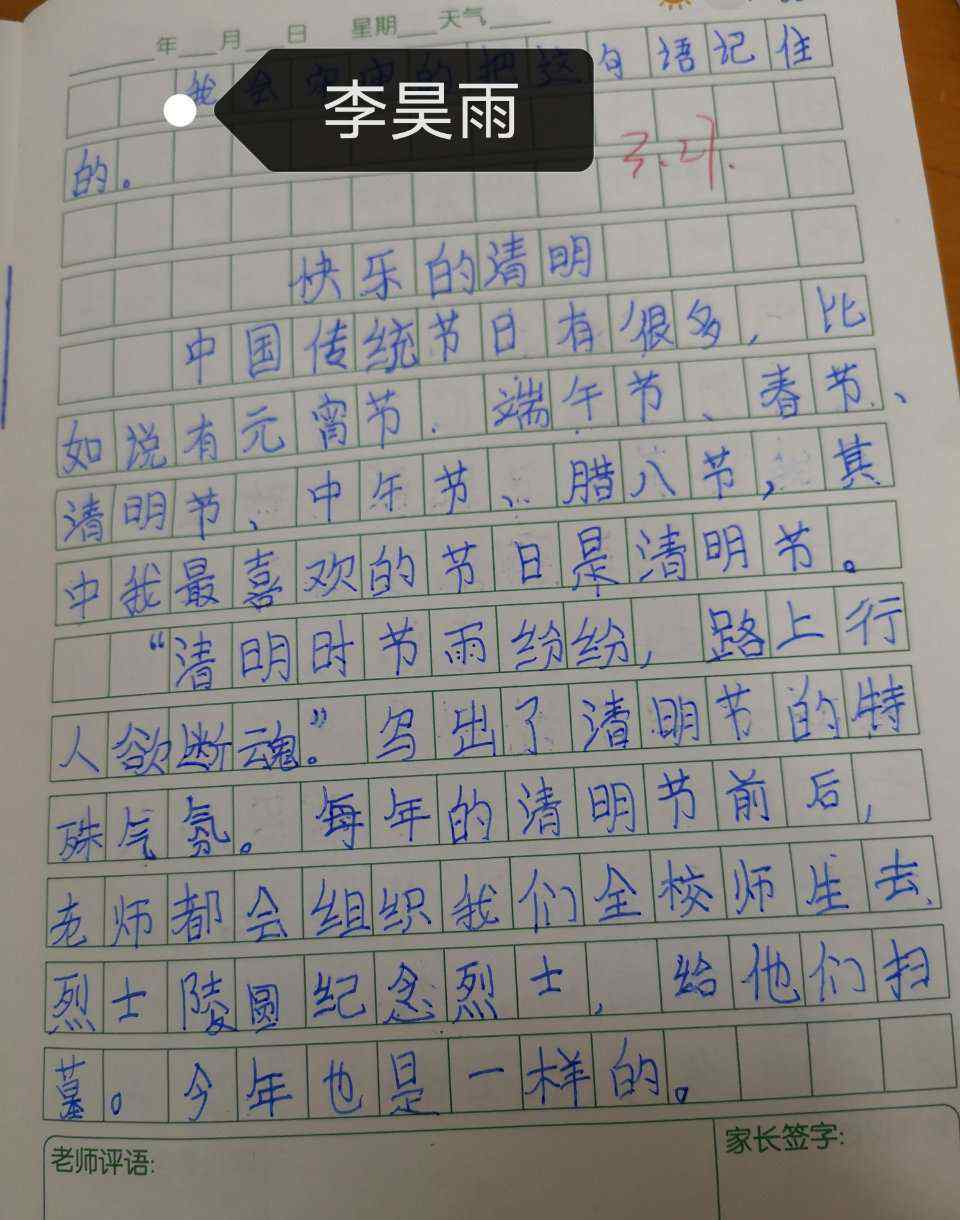 年 月 日 星期 天气
我会牢牢的把这句语记住
李昊雨
的。
3.27.
快乐的清明
中国传统节日有很多，比
如说有元宵节.端午节、春节、
清明节、中午节、腊八节，其
中我最喜欢的节日是清明节。
“清明时节雨纷纷，路上行
人欲断魂。”写出了清明节的特
殊气氛。每年的清明节前后，
老师都会组织我们全校师生去
烈士陵圆纪念烈士，给他们扫
墓。今年也是一样的。
老师评语:
家长签字: